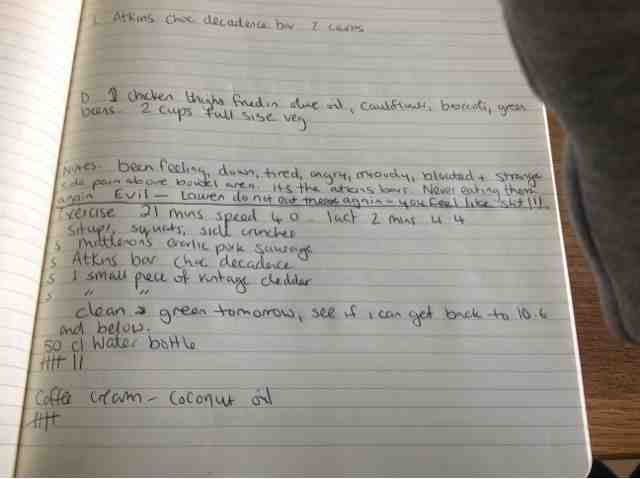 L Atkins choc decadence bar 2 carbs
D. chicken thighs fried in olive oil, cauliflower, broccoli, green
beans. 2 cups full size veg
Notes. been feeling, down, tired, angry, moody, bloated + strange
side pain above bowel area. its the atkins bars. Never eating them
again Evil - Lauren do not eat these again - you feel like shit!!!
Exercise 21 mins speed 4.0 last 2 mins 4.4
Situps, squats, side crunches
S garlic pork sausage
S Atkins bar choc decadence
S 1 small piece of vintage cheddar
S " "
clean & green tomorrow, see if i can get back to 10.6
and below.
50 cl Water bottle
HHT II
Coffee cream - coconut oil
HHT